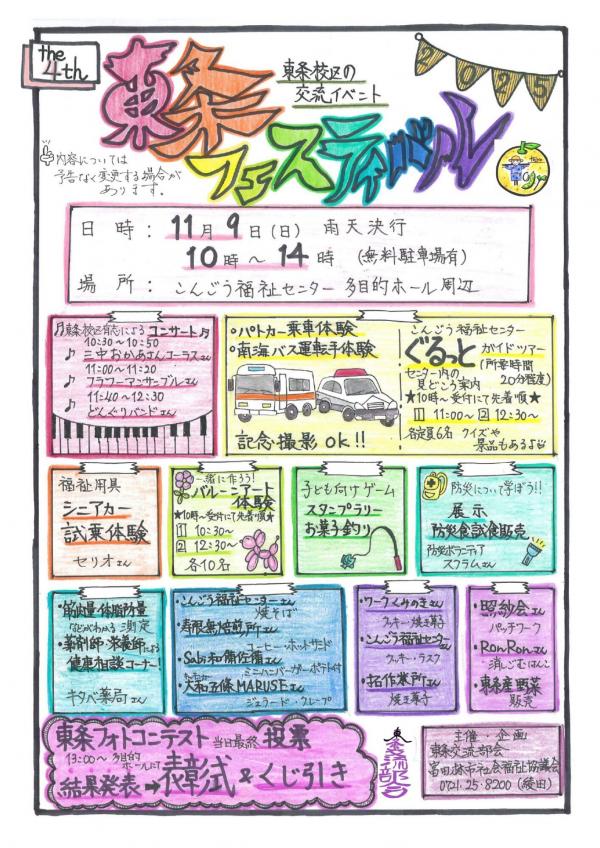 the 4th
東条
フェスティバル
東条校区の
交流イベント
2025
内容については
予告なく変更する場合が
あります。
日 時 : 11月 9日(日) 雨天決行
10時～14時 (無料駐車場有)
場 所 : こんごう福祉センター 多目的ホール周辺
東条校区有志によるコンサート
10:30～10:50
三中おかあさんコーラスさん
11:00～11:20
フラワーアンサンブルさん
11:40～12:30
どんぐりバンドさん
・パトカー乗車体験
・南海バス運転手体験
記念撮影OK!!
こんごう福祉センター
ぐるっとガイドツアー
センター内の
見どころ案内
(所要時間
20分程度)
★10時～受付にて先着順★
1 11:00～ 2 12:30～
各定員6名 クイズや
景品もあるよ
福祉用具
シニアカー
試乗体験
セリオさん
一緒に作ろう!
バルーンアート
体験
★10時～受付にて先着順★
1 10:30～
2 12:30～
各10名
子ども向けゲーム
スタンプラリー
お菓子釣り
防災について学ぼう!!
展示
防災食試食販売
防災ボランティア
スクラムさん
・筋肉量・体脂肪量
などがわかる測定
・薬剤師・栄養師による
健康相談コーナー!
キタバ薬局さん
・こんごう福祉センターさん
焼そば
・寿限無焙煎所さん
コーヒー・ホットサンド
・Sabi和備佐備さん
ミニハンバーガー・ポテト付
・大和五條MARUSEさん
ジェラード・クレープ
・ワークくみのきさん
クッキー・焼き菓子
・こんごう福祉センターさん
クッキー・ラスク
・拓作業所さん
焼き菓子
・照紗会さん
パッチワーク
・RonRonさん
消しごむはんこ
・東条産野菜
販売
東条フォトコンテスト 当日最終 投票
13:00～ 多目的
ホールにて
結果発表→表彰式&くじ引き
東条交流部会
主催・企画
東条交流部会
富田林市社会福祉協議会
0721・25・8200 (綾田)